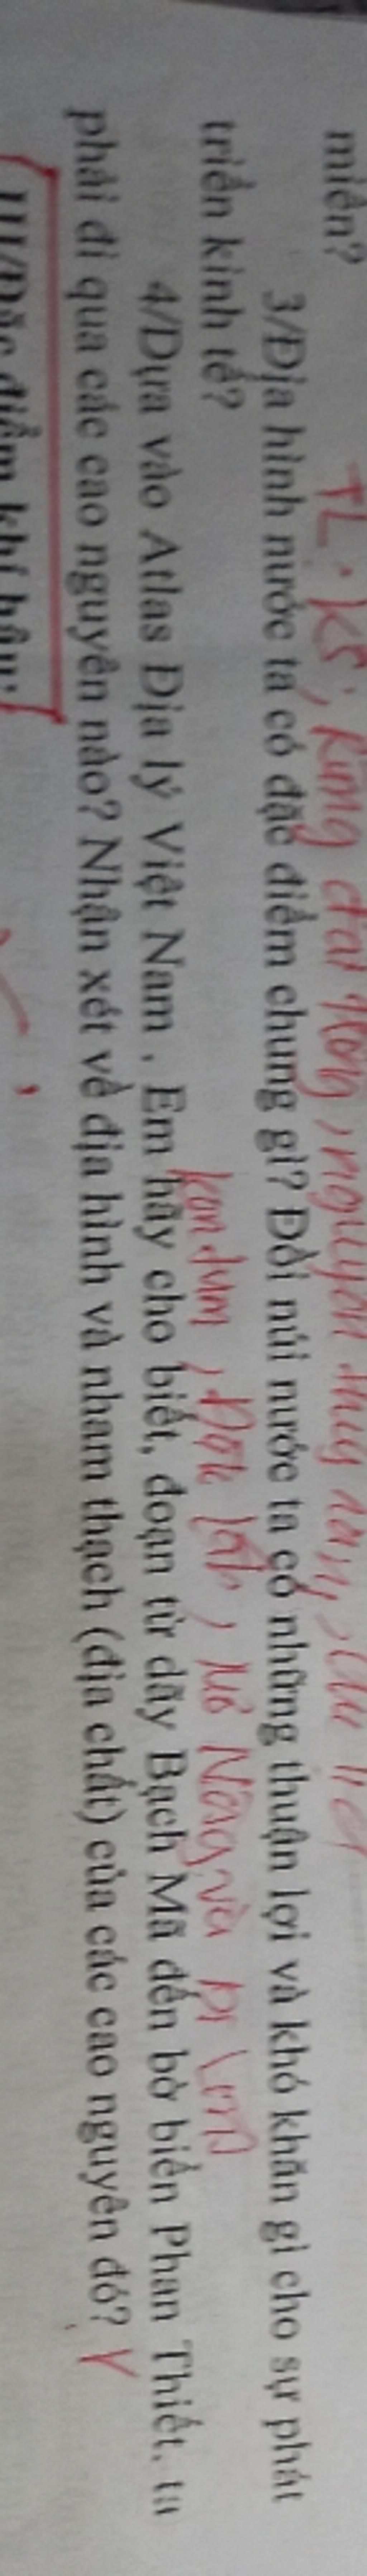 miền?
TL: KS, rừng đất trồng, nguyên
3/Địa hình nước ta có đặc điểm chung gì? Đồi núi nước ta có những thuận lợi và khó khăn gì cho sự phát
triển kinh tế?
kon tum, Đắk lắk, và
4/Dựa vào Atlas Địa lý Việt Nam , Em hãy cho biết, đoạn từ dãy Bạch Mã đến bờ biển Phan Thiết, ta
phải đi qua các cao nguyên nào? Nhận xét về địa hình và nham thạch (địa chất) của các cao nguyên đó?
III/Đặc điểm khí hậu: